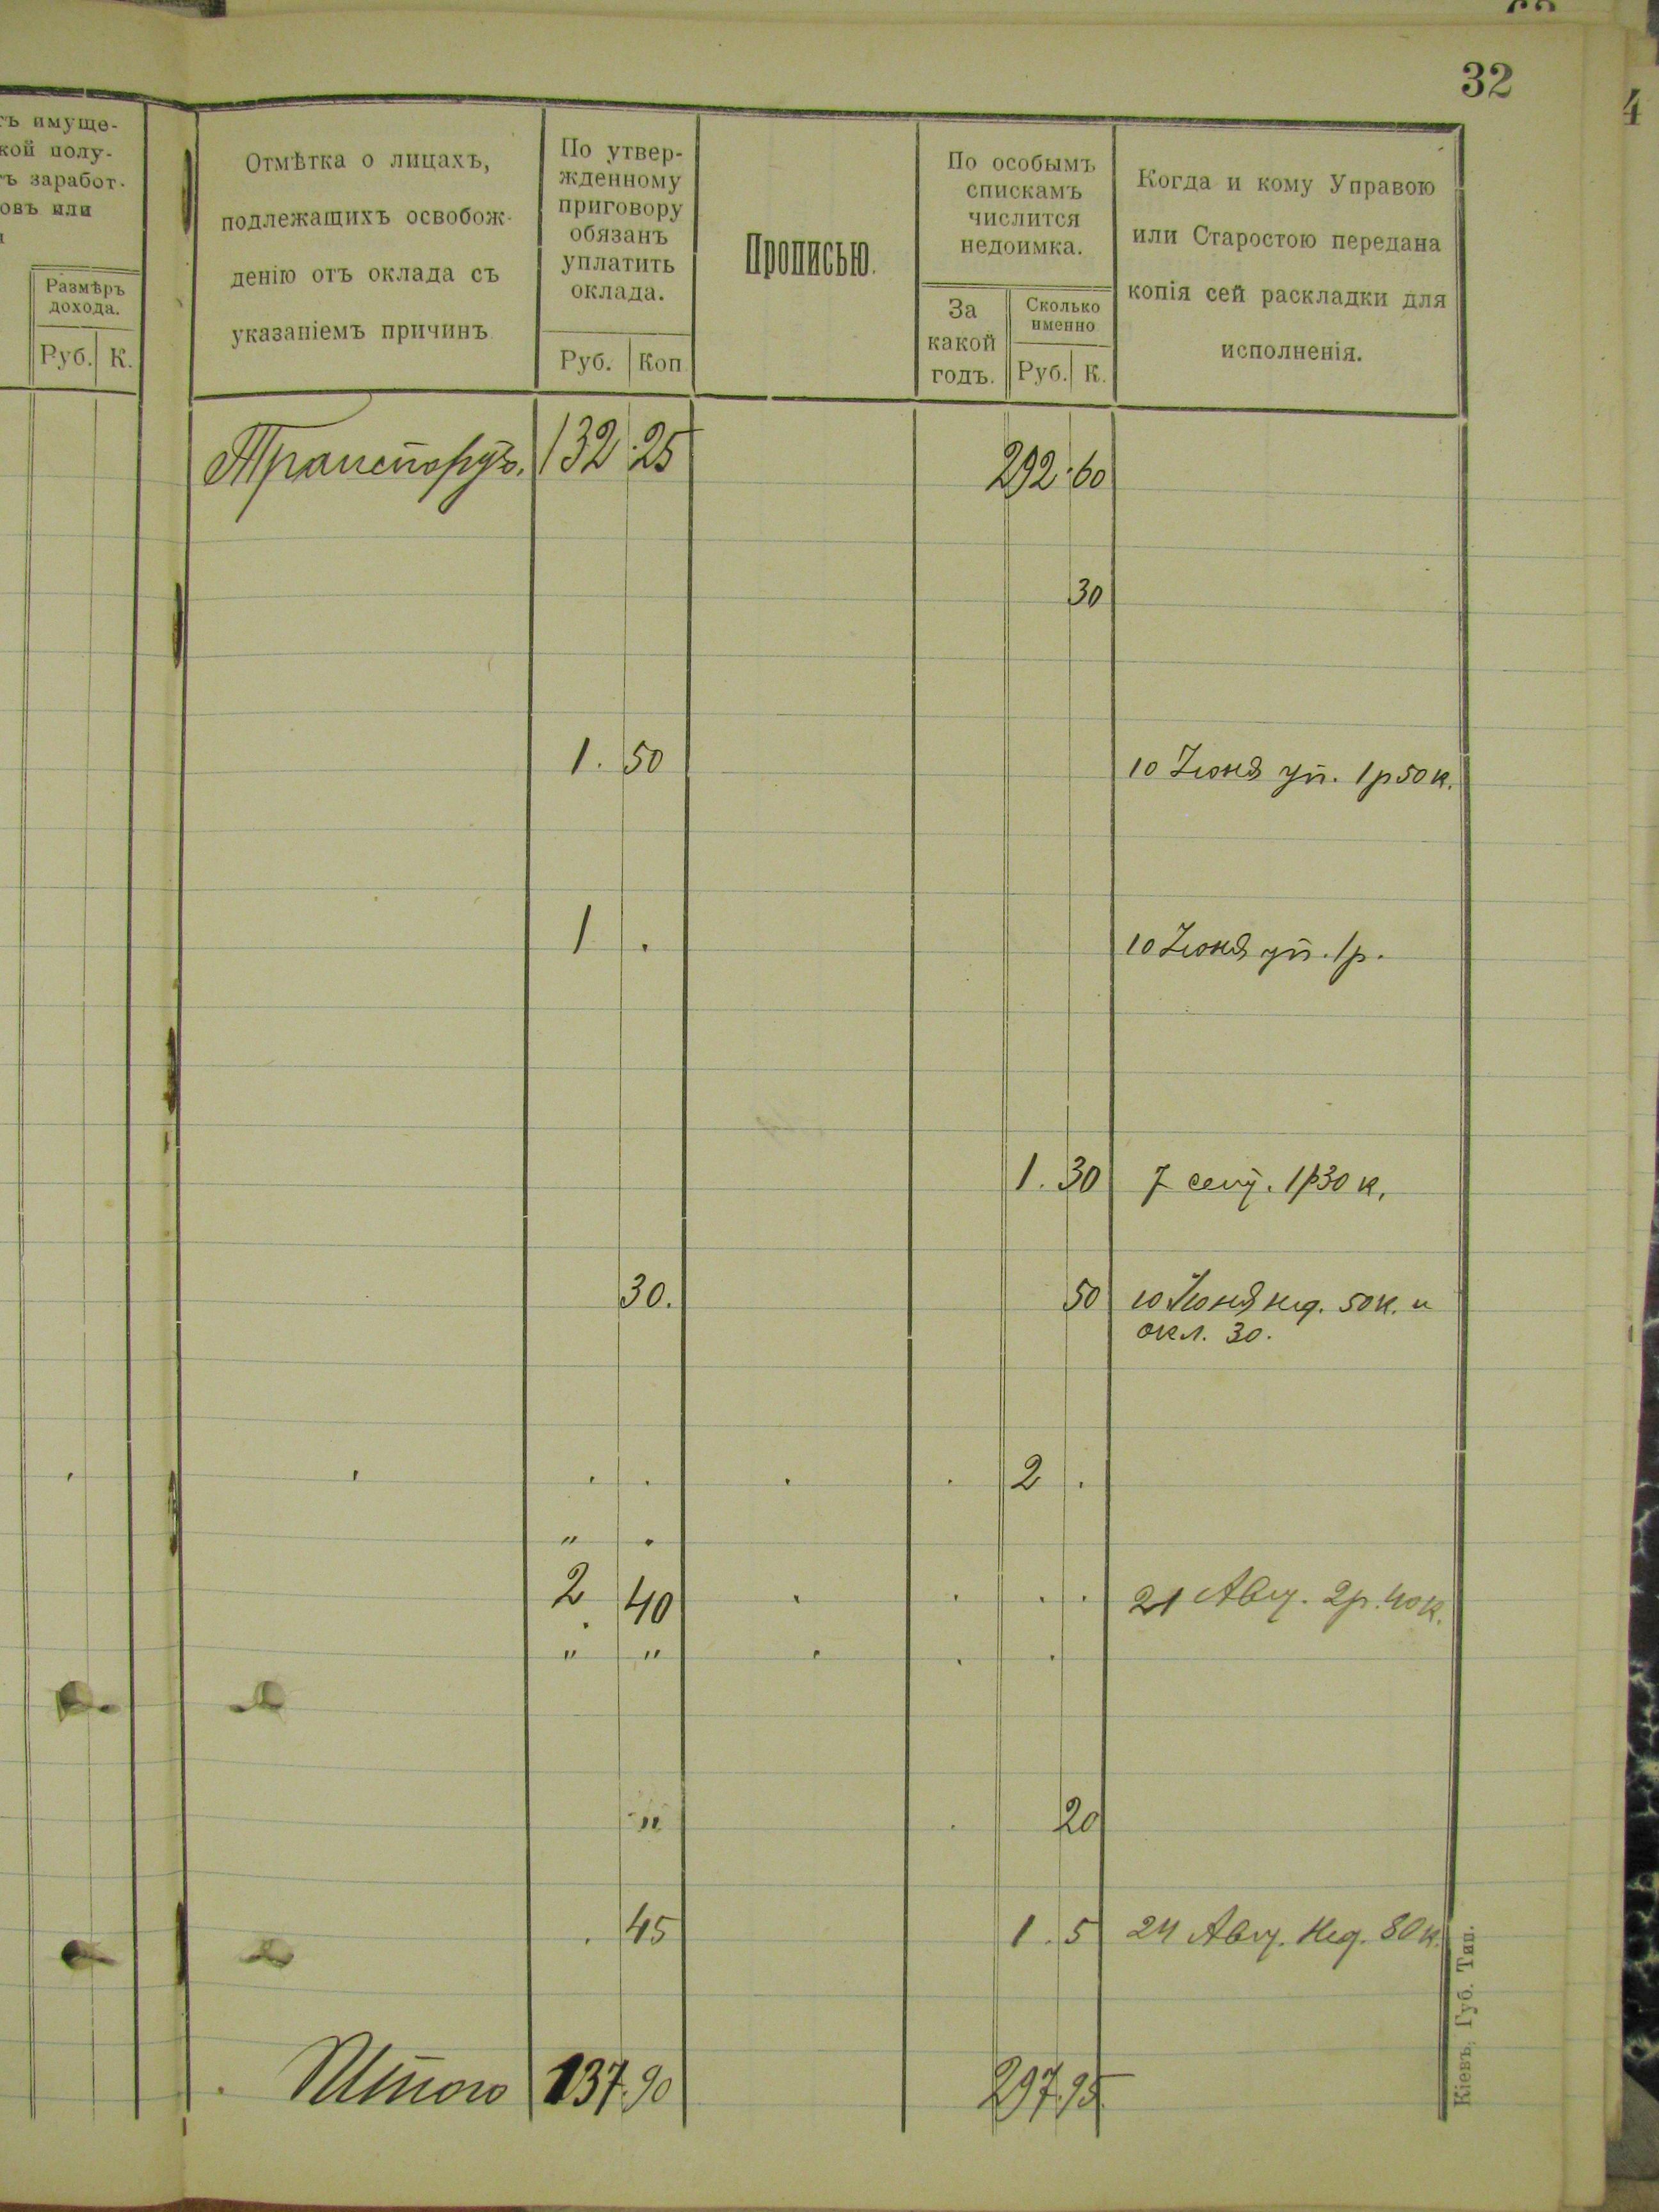 32
4
ть имуще-
кой полу-
ъ заработ-
овъ или
Размѣръ
дохода.
Руб. К.
Отмѣтка о лицахъ,
подлежащихъ освобож-
денію отъ оклада съ
указаніемъ причинъ
По утвер-
жденному
приговору
обязанъ
уплатить
оклада.
Руб. Коп
Прописью.
По особымъ
спискамъ
числится
недоимка.
За
какой
годъ.
Сколько
именно
Руб. К.
Когда и кому Управою
или Старостою передана
копія сей раскладки для
исполненія.
Транспортъ. 132.25 292.60
30
1. 50 10 Июня уп. 1р50к.
1 . 10 Июня уп. 1р.
1. 30 7 сент. 1р30к.
30. 50 10 Июня нед. 50к. и
окл. 30.
2 .
" .
2. 40 21 Авг. 2р.40к.
" "
" 20
. 45 1. 5 24 Авг. нед. 80к.
Итого 137.90 297.95
Кіевъ, Губ. Тип.